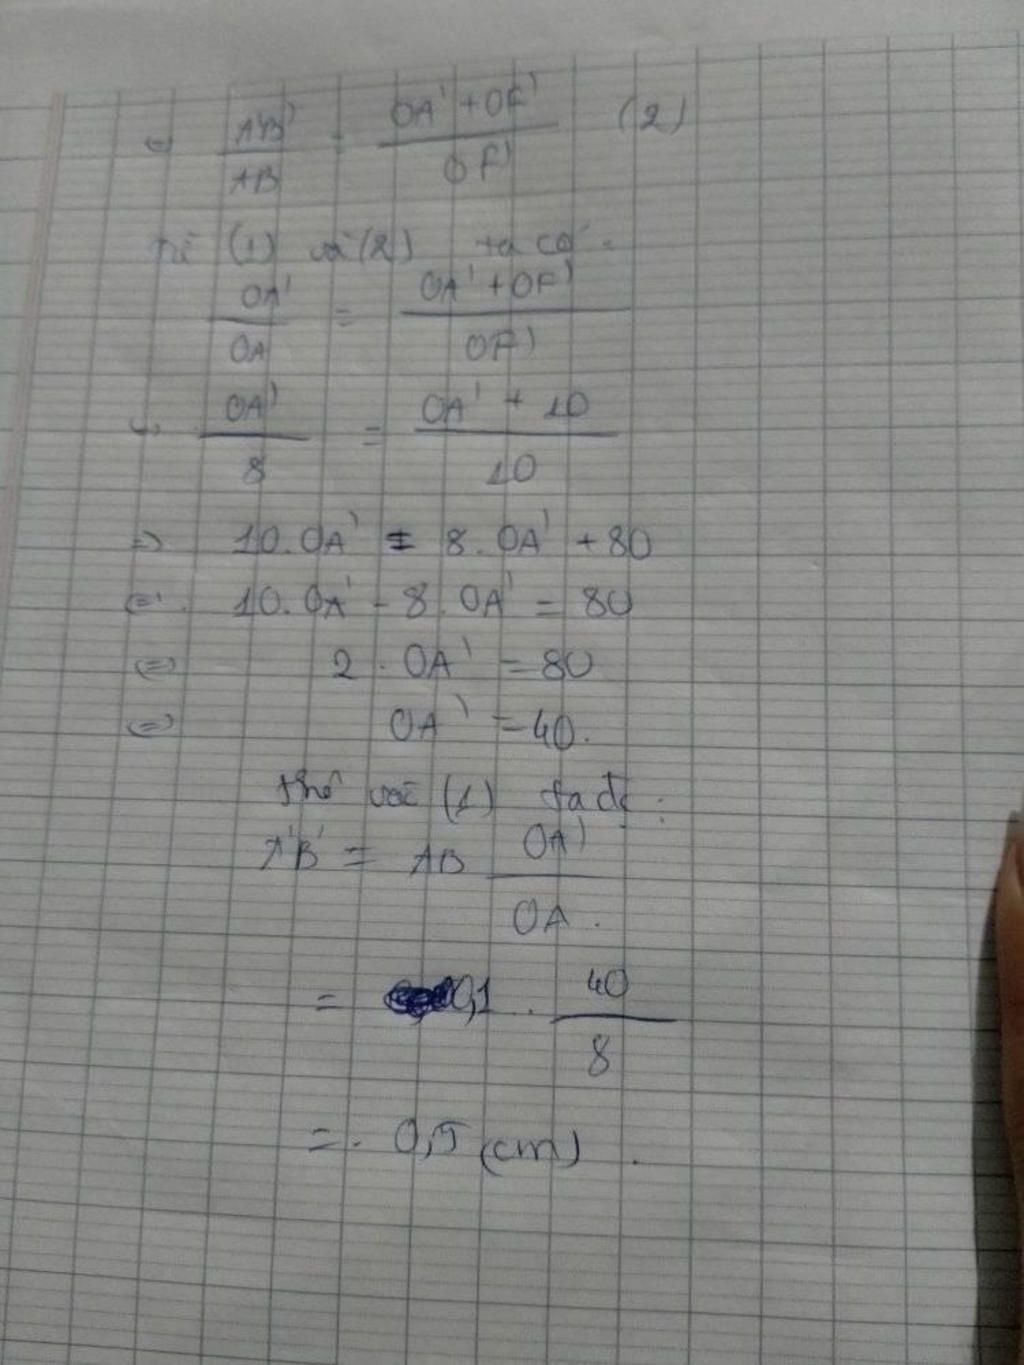 => A'B'/AB = OA' + OF'/OF' (2)
Từ (1) và (2) ta có:
OA'/OA = OA' + OF'/OF'
OA'/8 = OA' + 10/10
=> 10.OA' = 8.OA' + 80
<=> 10.OA' - 8.OA' = 80
<=> 2.OA' = 80
<=> OA' = 40.
thế vào (1) ta đc:
A'B' = AB OA'/OA.
= 0,1 . 40/8
= 0,5 (cm).